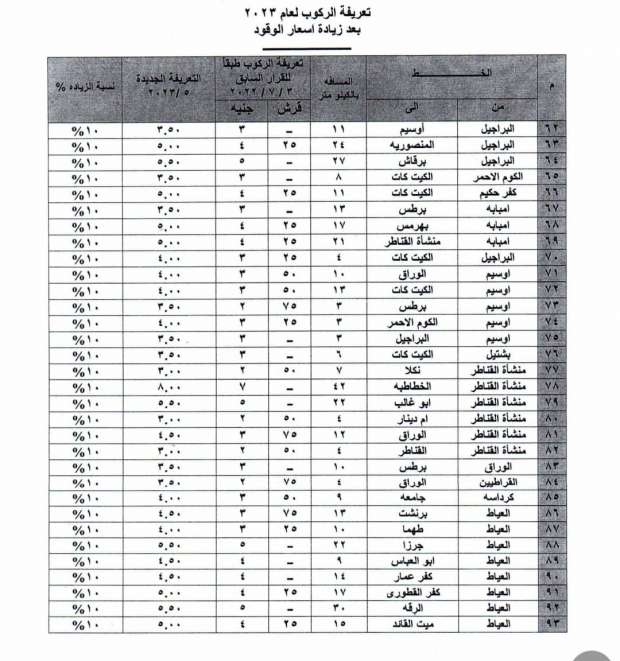 تعريفة الركوب لعام ٢٠٢٣
بعد زيادة اسعار الوقود
م الخـــط المسافه بالكيلو متر تعريفة الركوب طبقاً للقرار السابق ٢٠٢٢/٧/٣ التعريفة الجديدة ٢٠٢٣/٥ نسبة الزياده %
من الى قرش جنيه
٦٢ البراجيل أوسيم ١١ – ٣ ٣.٥٠ ١٠%
٦٣ البراجيل المنصوريه ٢٤ ٢٥ ٤ ٥.٠٠ ١٠%
٦٤ البراجيل برقاش ٢٧ – ٥ ٥.٥٠ ١٠%
٦٥ الكوم الاحمر الكيت كات ٨ – ٣ ٣.٥٠ ١٠%
٦٦ كفر حكيم الكيت كات ١١ ٢٥ ٤ ٥.٠٠ ١٠%
٦٧ امبابه برطس ١٣ – ٣ ٣.٥٠ ١٠%
٦٨ امبابه بهرمس ١٧ ٢٥ ٤ ٥.٠٠ ١٠%
٦٩ امبابه منشأة القناطر ٢١ ٢٥ ٤ ٥.٠٠ ١٠%
٧٠ البراجيل الكيت كات ٤ ٢٥ ٣ ٤.٠٠ ١٠%
٧١ اوسيم الوراق ١٠ ٥٠ ٣ ٤.٠٠ ١٠%
٧٢ اوسيم الكيت كات ١٣ ٥٠ ٣ ٤.٠٠ ١٠%
٧٣ اوسيم برطس ٣ ٧٥ ٢ ٣.٥٠ ١٠%
٧٤ اوسيم الكوم الاحمر ٣ ٢٥ ٣ ٤.٠٠ ١٠%
٧٥ اوسيم البراجيل ٣ – ٣ ٣.٥٠ ١٠%
٧٦ بشتيل الكيت كات ٦ – ٣ ٣.٥٠ ١٠%
٧٧ منشأة القناطر نكلا ٧ ٥٠ ٢ ٣.٠٠ ١٠%
٧٨ منشأة القناطر الخطاطبه ٤٢ – ٧ ٨.٠٠ ١٠%
٧٩ منشأة القناطر ابو غالب ٢٢ – ٥ ٥.٥٠ ١٠%
٨٠ منشأة القناطر ام دينار ٤ ٥٠ ٢ ٣.٠٠ ١٠%
٨١ منشأة القناطر الوراق ١٢ ٧٥ ٣ ٤.٥٠ ١٠%
٨٢ منشأة القناطر القناطر ٤ ٥٠ ٢ ٣.٠٠ ١٠%
٨٣ الوراق برطس ١٠ – ٣ ٣.٥٠ ١٠%
٨٤ القراطيين الوراق ٤ ٧٥ ٢ ٣.٥٠ ١٠%
٨٥ كرداسه جامعه ٩ ٥٠ ٣ ٤.٠٠ ١٠%
٨٦ العياط برنشت ١٣ ٧٥ ٣ ٤.٥٠ ١٠%
٨٧ العياط طهما ١٠ ٢٥ ٣ ٤.٠٠ ١٠%
٨٨ العياط جرزا ٢٢ – ٥ ٥.٥٠ ١٠%
٨٩ العياط ابو العباس ٩ – ٤ ٤.٥٠ ١٠%
٩٠ العياط كفر عمار ١٤ – ٤ ٤.٥٠ ١٠%
٩١ العياط كفر القطورى ١٧ ٢٥ ٤ ٥.٠٠ ١٠%
٩٢ العياط الرقه ٣٠ – ٥ ٥.٥٠ ١٠%
٩٣ العياط ميت القائد ١٥ ٢٥ ٤ ٥.٠٠ ١٠%